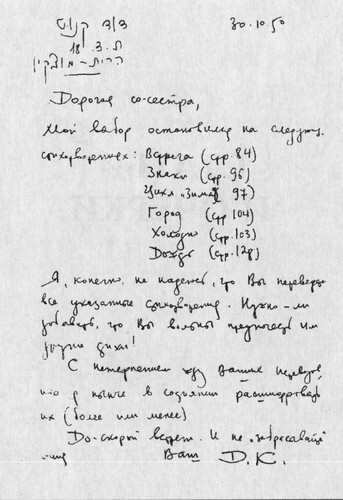 דוד קנוט 30.10.50
ת.ד. 18
קרית-מוצקין
Дорогая со-сестра,
Мой выбор остановился на следующ.
стихотворениях: (стр. 84)
Знаки (стр. 96)
Цикл "Зима" 97)
Город (стр 104)
Холодно (стр. 103)
Дождь (стр. 128)
Я, конечно, не надеюсь, что Вы переведете
все указанные стихотворения. Нужно-ли
добавлять, что Вы вольны предпочесть им
другие стихи!
С нетерпением жду Ваших переводов,
что я ныне в состоянии расшифровать
их (более или менее)
До-скорой встречи. И не
Ваш Д.К.